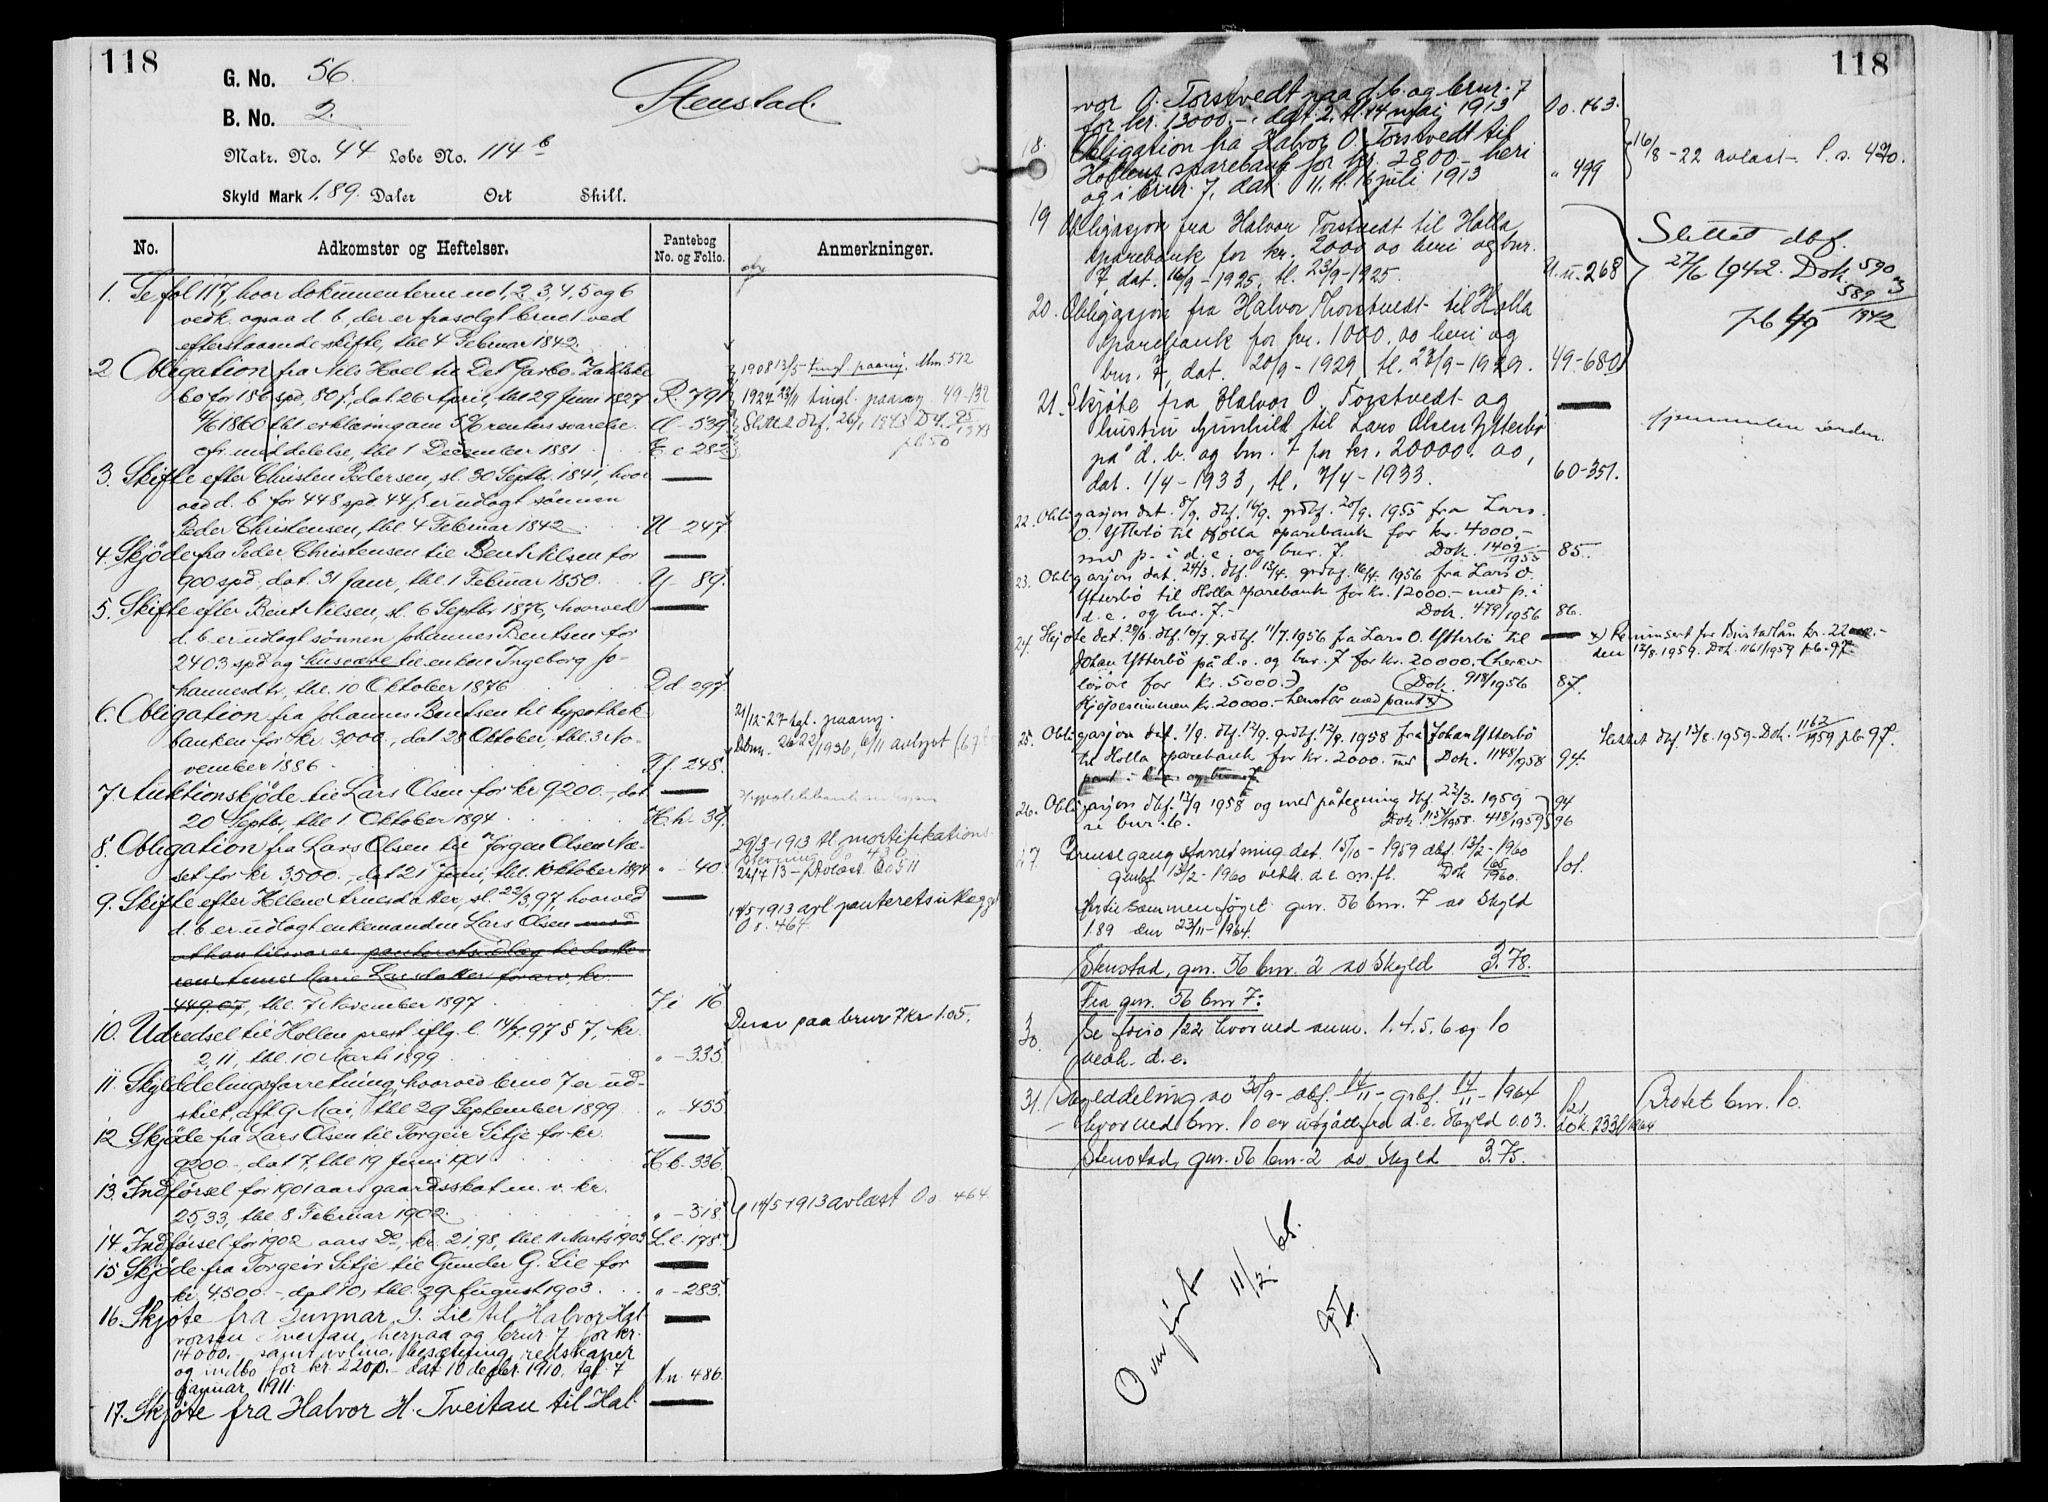 118
G. No. 56.
B. No. 2.
Stenstad.
Matr. No. 44 Løbe No. 114 b
Skyld Mark 1.89. Daler Ort Skill.
No.
Adkomster og Heftelser.
Pantebog No. og Folio.
Anmerkninger.
1. Se fol 117, hvor dokumenterne no 1, 2, 3, 4, 5 og 6
vedk. ogsaa d. b., der er frasolgt bruct ved
efterstaaende skifte, thl 4 Februar 1842.
2 Obligation fra Nils Hoel til Det Garbo-Zahlske
bo for 186 spd, 80 ſ, dat 26 April, thl 29 Juni 1827 R. 791
4/6 1860 thl erklæring om 5% renters svarelse A - 539
cfr. meddelelse, thl 1 December 1881 E. e 282
1908 13/5 - tingl. paany. Mm 572
1927 23/11 tingl. paany 49-132
Slettet dbf. 26/1 1943 D.4. 95/1943
pb 50
3. Skifte efter Christen Pedersen, sl. 30 Septbr 1841, hvor
ved d. b for 448 spd 44 ſ er udlagt sønnen
Peder Christensen, thl 4 Februar 1842 U - 247
4. Skjøde fra Peder Christensen til Bent Nilsen for
900 spd, dat. 31 Janr, thl 1 Februar 1850. Y - 89.
5. Skifte efter Bent Nilsen, sl. 6 Septbr 1876, hvorved
d. b er udlagt sønnen Johannes Bentsen for
2403 spd og husvære til enken Ingeborg Jo-
hannesdtr, thl. 10 Oktober 1876 D d 297
6. Obligation fra Johannes Bentsen til Hypothek
banken for kr 3000., dat 28 Oktober, thl. 3 No-
vember 1886 F f. 248.
21/12-27 tgl. paany.
Dbnr. 2622/1936, 6/11 avlyst
7. Auktionskjøde til Lars Olsen for kr 9200.-, dat
20 Septbr, thl 1 Oktober 1894 H. h. 39
8. Obligation fra Lars Olsen til Jørgen Olsen Næ-
set for kr 3500., dat 21 Juni, thl. 1 Oktober 1894 " - 40
29/3-1913 tl. mortifikations-
stevning
26/7 13 - Avlæst Oo 511
9. Skifte efter Helene Arnesdatter, sl. 22/3 97, hvorved
d. b. er udlagt enkemanden Lars Olsen med
at han tilsvarer panteretsudlæg til datte-
ren Anne Marie Larsdatter for arv, kr.
449.07, thl. 7 November 1897 J i 16
14/5-1913 avl panteretsutlegget
O o. 464
10. Udredsel til Hollen prest iflg. l. 14/7. 97 § 7, kr.
2,11, thl. 10 Marts 1899 " - 335
Derav paa brnr 7 kr 1.05.
11. Skylddelingsforretning, hvorved brno 7 er ud-
skilt, afh 9 Mai, thl 29 September 1899 " - 455
12 Skjøde fra Lars Olsen til Torgeir Sitje for kr.
9200.-, dat 7, thl 19 Juni 1901 K. k. 336
13. Indførsel for 1901 aars gaardsskat m. v. kr.
25,33, thl. 8 Februar 1902. " - 318
14/5 1913 avlæst O o. 464
14. Indførsel for 1902 aars Do, kr. 21,98, thl. 11 Marts 1903 L. l. 178
15 Skjøde fra Torgeir Sitje til Gunder G. Lie for
kr 4500.- dat 10, thl. 29 August 1903. " - 283.
16. Skjøte fra Gunnar G. Lie til Halvor Hal-
vorsen Tveitan, herpaa og brnr. 7 for kr.
14000.- samt avling, besætning, redskaper
og indbo for kr. 2200.- dat 10 decbr. 1910, tgl. 7
januar 1911. N n 486.
17. Skjøte fra Halvor H. Tveitan til Hal-
118
vor O. Torstvedt paa d. b. og brnr. 7
for kr. 13000.- dat 2. tl. 14 mai 1913 Oo. 463.
18. Obligation fra Halvor O. Torstvedt til
Hollens sparebank for kr. 2800.- heri
og i brnr. 7, dat. 11. tl. 16 juli 1913 " 499
16/8-22 avlæst S. s. 470.
19 Obligasjon fra Halvor Torstvedt til Holla
sparebank for kr. 2000.00 heri og bnr.
7, dat. 16/9-1925, tl. 23/9-1925. U.u-268
20. Obligasjon fra Halvor Thorstvedt til Holla
sparebank for kr. 1000.00 heri og
bnr. 7, dat. 20/9-1929 tl. 23/9-1929. 49-680
Slettet dbf.
27/6 1942. Dok. 590 og
589/1942
pb 49
21. Skjøte fra Halvor O. Torstvedt og
hustru Gunhild til Lars Olsen Ytterbø
på d. b. og bnr. 7 for kr. 20000.00,
dat. 1/4-1933, tl. 7/4-1933. 60-351.
22. Obligasjon dat. 8/9. dbf. 16/9. grdbf. 20/9. 1955 fra Lars
O. Ytterbø til Holla sparebank for kr. 4000.-
med p. i d. e. og bnr. 7. Dok. 1409/1955 85.
23. Obligasjon dat. 24/3. dbf. 13/4. grdbf. 16/4 1956 fra Lars O.
Ytterbø til Holla sparebank for kr. 12000.- med p. i
d. e. og bnr. 7.- Dok. 479/1956 86.
24. Skjøte dat. 29/6. dbf. 10/7. grdbf. 11/7. 1956 fra Lars O. Ytterbø til
Johan Ytterbø på d. e. og bnr. 7 for kr. 20000.- (herav
løsøre for kr. 5000.-) Dok. 918/1956 87.
Kjøpesummen kr. 20000.- henstår med pant x)
25. Obligasjon dat. 1/9. dbf. 12/9. grdbf. 12/9. 1958 fra Johan Ytterbø
til Holla sparebank for kr. 2000. med Dok. 1148/1958 94.
pant i d. e. og bnr. 7.
Slettet dbf 13/8. 1959. Dok. 1162/1959 pb 97.
26. Obligasjon dbf. 12/9 1958 og med påtegning dbf. 23/3. 1959 94
se bnr. 6. Dok. 1154/1958. 418/1959 96
27. Grensegangsforretning dat. 15/10 - 1959 dbf. 13/2-1960
Grdbf. 13/2-1960 vedk. d. e. m. fl. Dok 165/1960. 101.
Hertil sammenføyet gnr. 56 bnr. 7 av skyld
1.89 den 23/11-1964.
Stenstad, gnr. 56 bnr. 2 av skyld 3.78.
Fra gnr. 56 bnr 7:
30. Se folio 122 hvorved anm. 1. 4. 5. 6 og 10
vedk. d. e.
31. Skylddeling av 30/9 - dbf. 14/11 - grbf. 14/11 - 1964
hvorved bnr. 10 er utgått fra d. e. Skyld 0.03.
Brotet bnr. 10.
Stenstad, gnr. 56 bnr. 2 av skyld 3.75.
Overført 11/2 65.